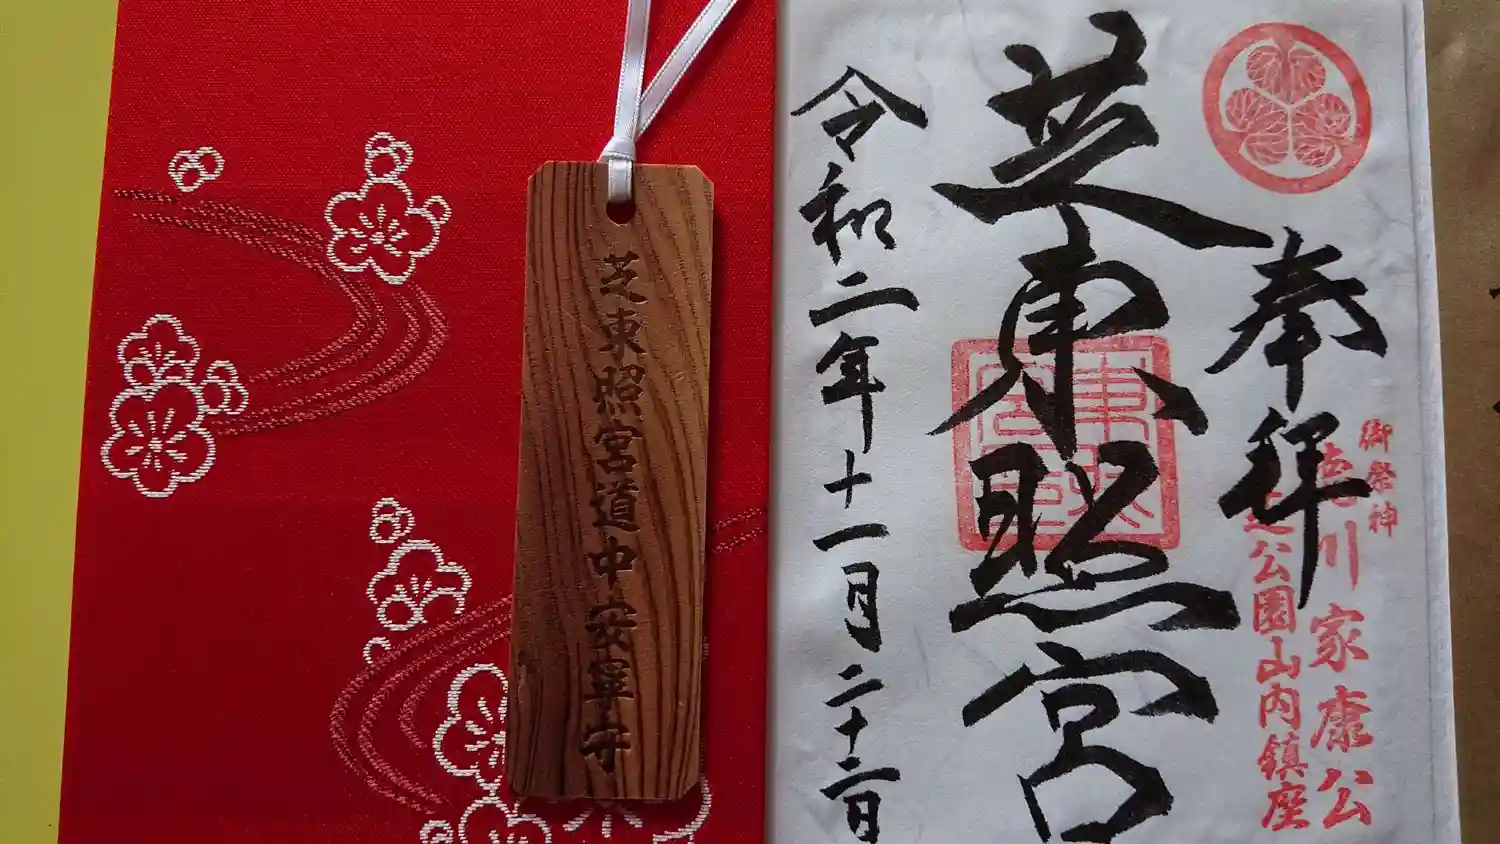 奉拝
御祭神
徳川家康公
芝公園山内鎮座
芝東照宮
令和二年十一月二十二日
芝東照宮道中安寧守